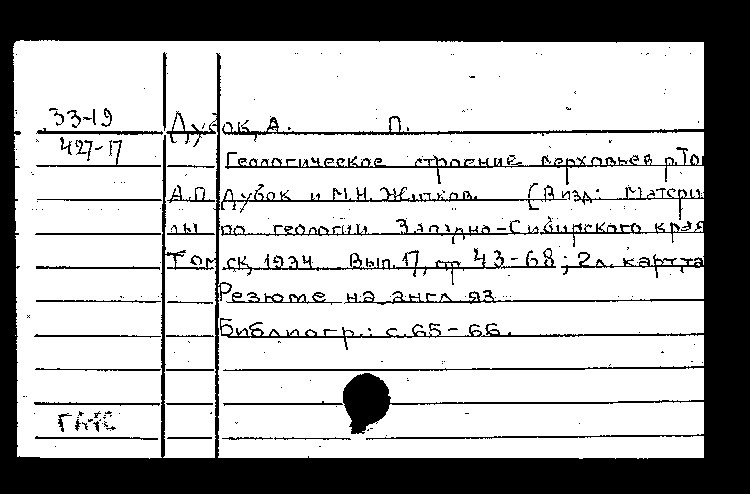 33-19
427-17
Дубок, А. П.
Геологическое строение верховьев р.Том
А.П. Дубок и М.Н. Житков. [В изд: Матери
лы по геологии Западно-Сибирского края
Томск, 1934. Вып. 17, стр 43-68; 2л. карт, та
Резюме на англ яз
Библиогр.: с. 65-66.